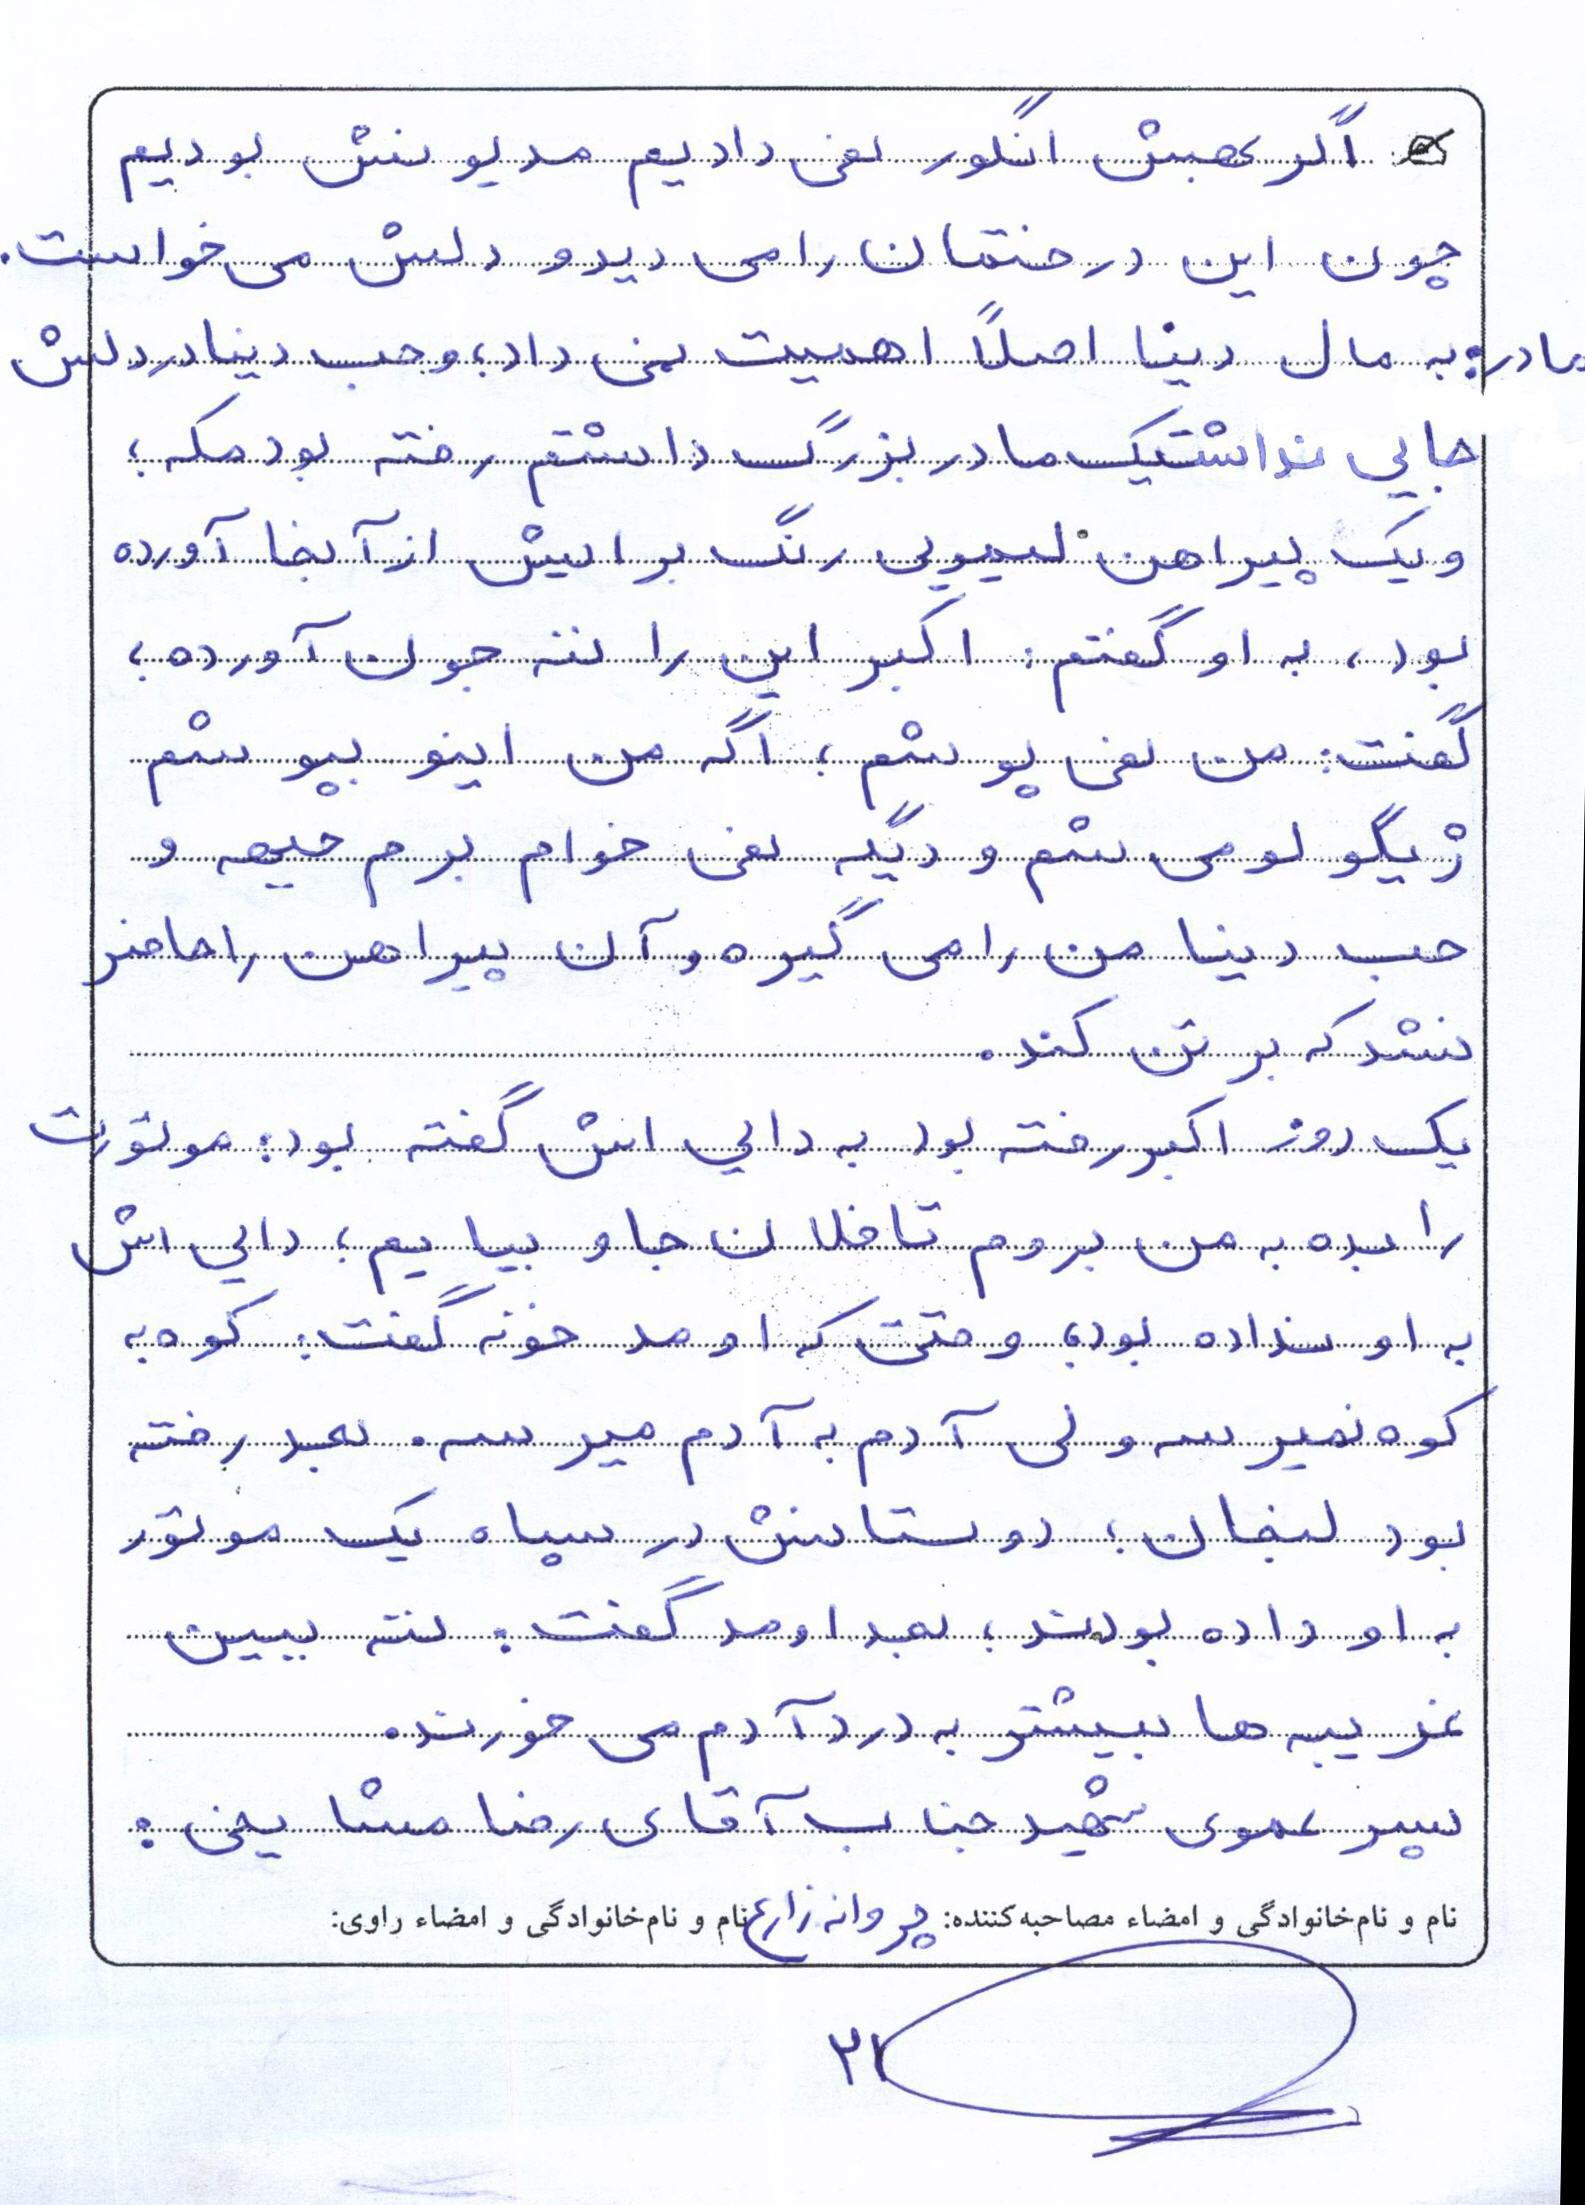 اگر بهش انگور نمی دادیم مدیونش بودیم
چون این درختمان را می دید و دلش می خواست.
مادر: به مال دنیا اصلاً اهمیت نمی داد؛ و حب دنیا در دلش
جایی نداشت یک مادر بزرگ داشتم رفته بود مکه؛
و یک پیراهن لیمویی رنگ برایش از آنجا آورده
بود، به او گفتم: اکبر این را ننه جون آورده؛
گفت: من نمی پوشم؛ اگه من اینو بپوشم
ژیگولو می شم و دیگه نمی خوام برم جبهه و
حب دنیا من را می گیره و آن پیراهن را حاضر
نشد که بر تن کند.
یک روز اکبر رفته بود به دایی اش گفته بود: موتورت
را بده به من بروم تا فلان جا و بیایم؛ دایی اش
به او نداده بود؛ وقتی که اومد خونه گفت: کوه به
کوه نمیرسه ولی آدم به آدم میرسه. بعد رفته
بود لنجان؛ دوستانش در سپاه یک موتور
به او داده بودند؛ بعد اومد گفت: ننه ببین
غریبه ها بیشتر به درد آدم می خورند.
پسر عموی شهید جناب آقای رضا مشایخی:
نام و نام‌خانوادگی و امضاء مصاحبه‌کننده: پروانه زارع نام و نام‌خانوادگی و امضاء راوی:
۲۱